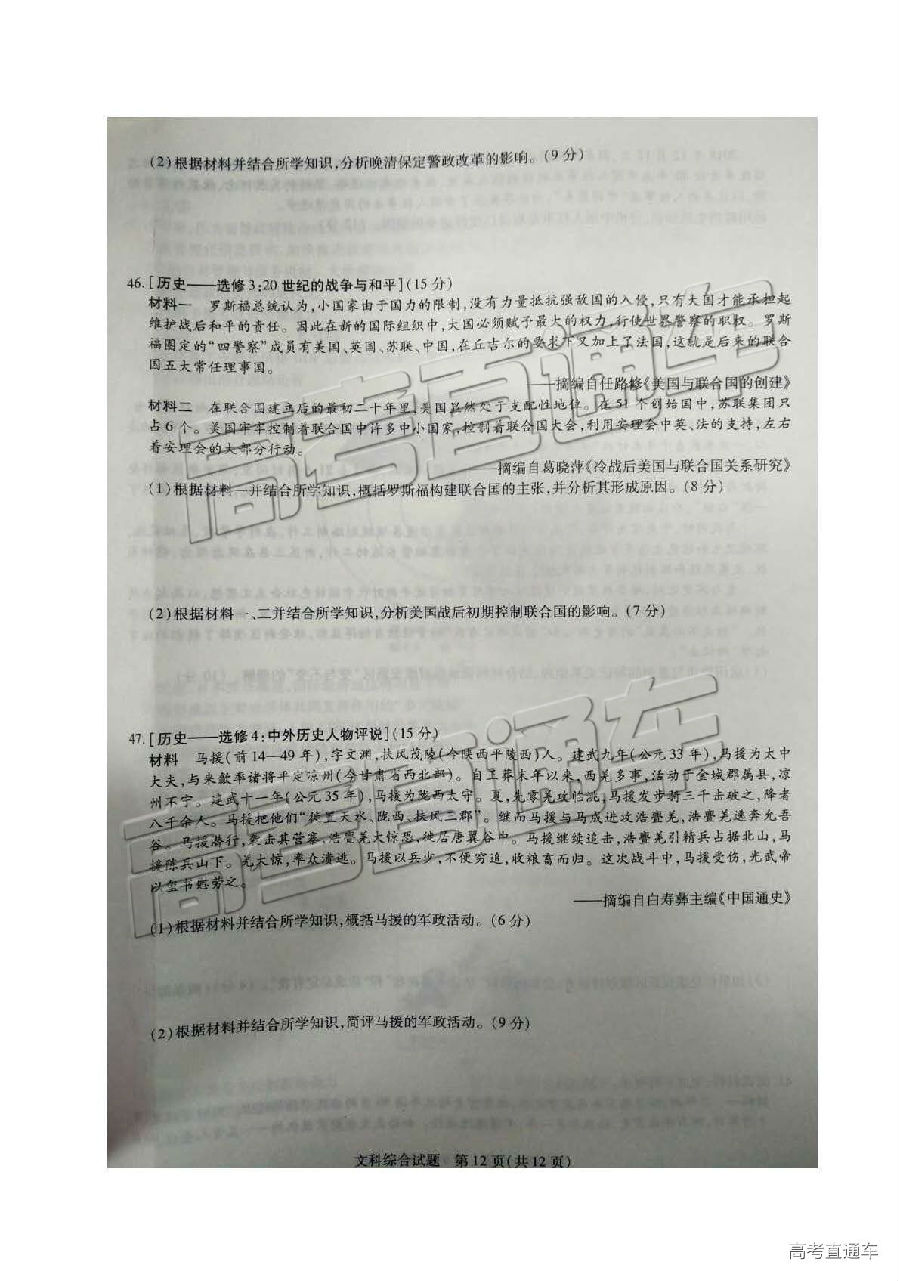 (2)根据材料并结合所学知识,分析晚清保定警政改革的影响。(9分)
46.[历史——选修3:20世纪的战争与和平](15分)
材料一 罗斯福总统认为,小国家由于国力的限制,没有力量抵抗强敌国的入侵,只有大国才能承担起
维护战后和平的责任。因此在新的国际组织中,大国必须赋予最大的权力,行使世界警察的职权。罗斯
福圈定的“四警察”成员有美国、英国、苏联、中国,在丘吉尔的要求下又加上了法国,这就是后来的联合
国五大常任理事国。
——摘编自任路修《美国与联合国的创建》
材料二 在联合国建立后的最初二十年里,美国显然处于支配性地位。在51个创始国中,苏联集团只
占6个。美国牢牢控制着联合国中许多中小国家,控制着联合国大会,利用安理会中英、法的支持,左右
着安理会的大部分行动。
——摘编自葛晓萍《冷战后美国与联合国关系研究》
(1)根据材料一并结合所学知识,概括罗斯福构建联合国的主张,并分析其形成原因。(8分)
(2)根据材料一、二并结合所学知识,分析美国战后初期控制联合国的影响。(7分)
47.[历史——选修4:中外历史人物评说](15分)
材料 马援(前14—49年),字文渊,扶风茂陵(今陕西平陵西)人。建武九年(公元33年),马援为太中
大夫,与来歙率诸将平定凉州(今甘肃省西北部)。自王莽末年以来,西羌多事,活动于金城郡属县,凉
州不宁。建武十一年(公元35年),马援为陇西太守。夏,先零羌攻临洮,马援发步骑三千击破之,降者
八千余人。马援把他们“徙置天水、陇西、扶风三郡”。继而马援与马成进攻浩亹羌,浩亹羌逃奔允吾
谷。马援潜行,袭击其营寨,浩亹羌大惊恐,徙居唐翼谷中。马援继续追击,浩亹羌引精兵占据北山,马
援陈兵山下。羌大惊,率众溃逃。马援以兵少,不便穷追,收粮畜而归。这次战斗中,马援受伤,光武帝
以玺书慰劳之。
——摘编自白寿彝主编《中国通史》
(1)根据材料并结合所学知识,概括马援的军政活动。(6分)
(2)根据材料并结合所学知识,简评马援的军政活动。(9分)
文科综合试题 第12页(共12页)
高考直通车
高考直通车
高考直通车